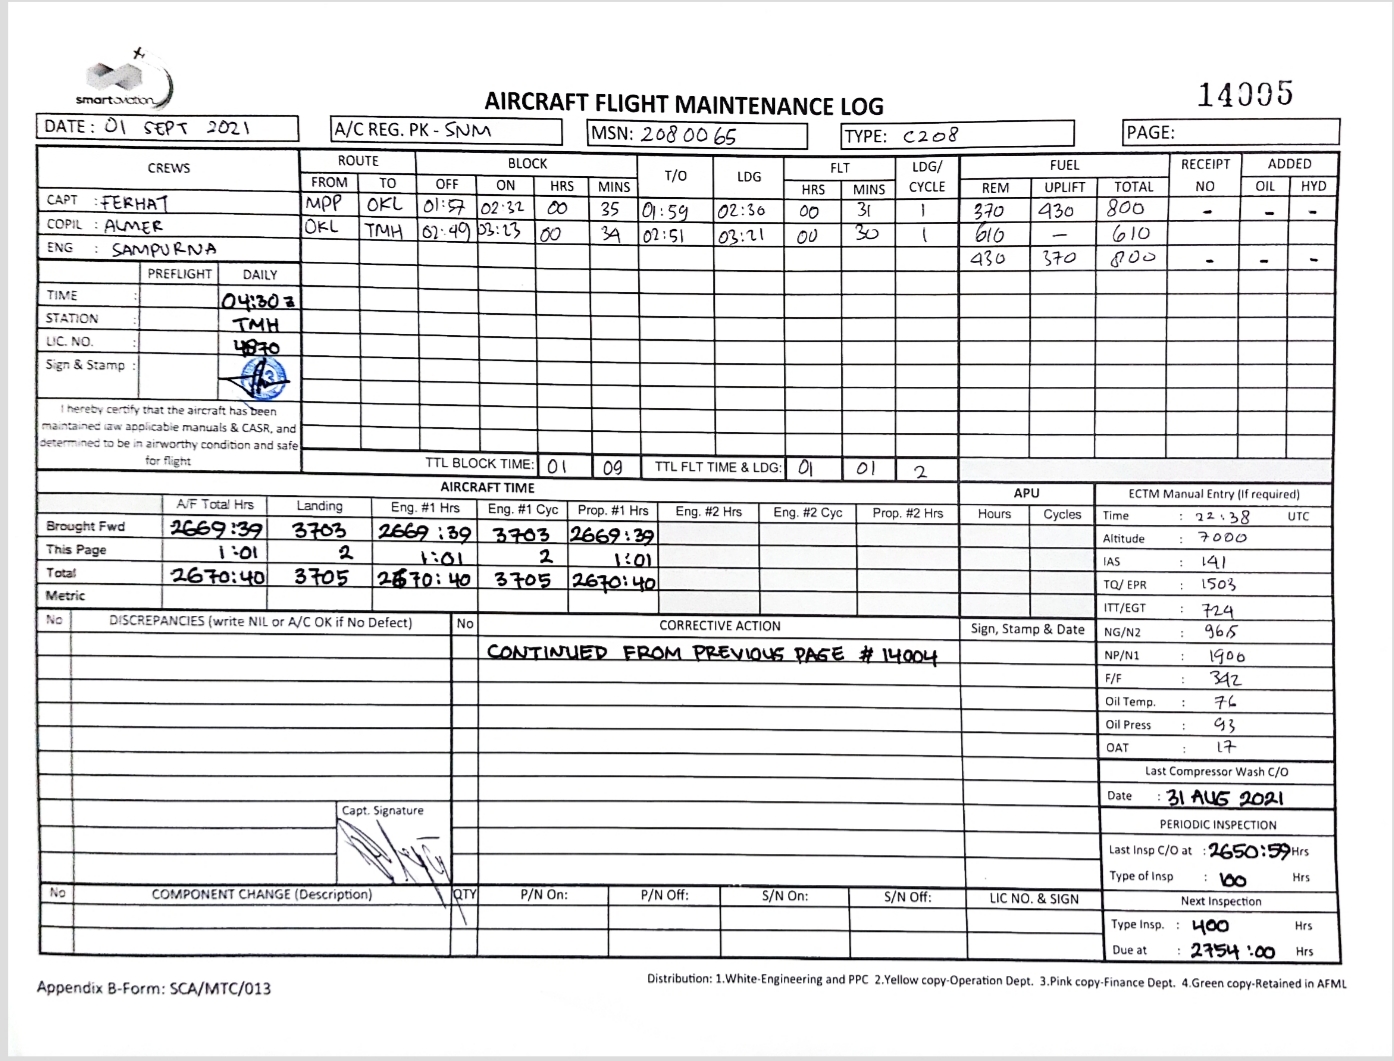 smart aviation
14005
AIRCRAFT FLIGHT MAINTENANCE LOG
DATE : 01 SEPT 2021 A/C REG. PK - SNM MSN: 2080065 TYPE: C208 PAGE:
CREWS ROUTE BLOCK T/O LDG FLT LDG/ CYCLE FUEL RECEIPT NO ADDED
FROM TO OFF ON HRS MINS HRS MINS REM UPLIFT TOTAL OIL HYD
CAPT : FERHAT MPP OKL 01:57 02:32 00 35 01:59 02:30 00 31 1 370 430 800 - - -
COPIL : ALMER OKL TMH 02:49 03:23 00 34 02:51 03:21 00 30 1 610 - 610
ENG : SAMPURNA 430 370 800 - - -
PREFLIGHT DAILY
TIME : 04:30z
STATION : TMH
LIC. NO. : 4870
Sign & Stamp :
I hereby certify that the aircraft has been
maintained iaw applicable manuals & CASR, and
determined to be in airworthy condition and safe
for flight
TTL BLOCK TIME: 01 09 TTL FLT TIME & LDG: 01 01 2
AIRCRAFT TIME APU ECTM Manual Entry (If required)
A/F Total Hrs Landing Eng. #1 Hrs Eng. #1 Cyc Prop. #1 Hrs Eng. #2 Hrs Eng. #2 Cyc Prop. #2 Hrs Hours Cycles
Brought Fwd 2669:39 3703 2669:39 3703 2669:39
This Page 1:01 2 1:01 2 1:01
Total 2670:40 3705 2670:40 3705 2670:40
Metric
Time : 22:38 UTC
Altitude : 7000
IAS : 141
TQ/ EPR : 1503
ITT/EGT : 724
NG/N2 : 96,5
NP/N1 : 1900
F/F : 342
Oil Temp. : 76
Oil Press : 93
OAT : 17
No DISCREPANCIES (write NIL or A/C OK if No Defect) No CORRECTIVE ACTION Sign, Stamp & Date
CONTINUED FROM PREVIOUS PAGE # 14004
Capt. Signature
Last Compressor Wash C/O
Date : 31 AUG 2021
PERIODIC INSPECTION
Last Insp C/O at : 2650:59 Hrs
Type of Insp : 100 Hrs
Next Inspection
Type Insp. : 400 Hrs
Due at : 2754:00 Hrs
No COMPONENT CHANGE (Description) QTY P/N On: P/N Off: S/N On: S/N Off: LIC NO. & SIGN
Appendix B-Form: SCA/MTC/013
Distribution: 1.White-Engineering and PPC 2.Yellow copy-Operation Dept. 3.Pink copy-Finance Dept. 4.Green copy-Retained in AFML